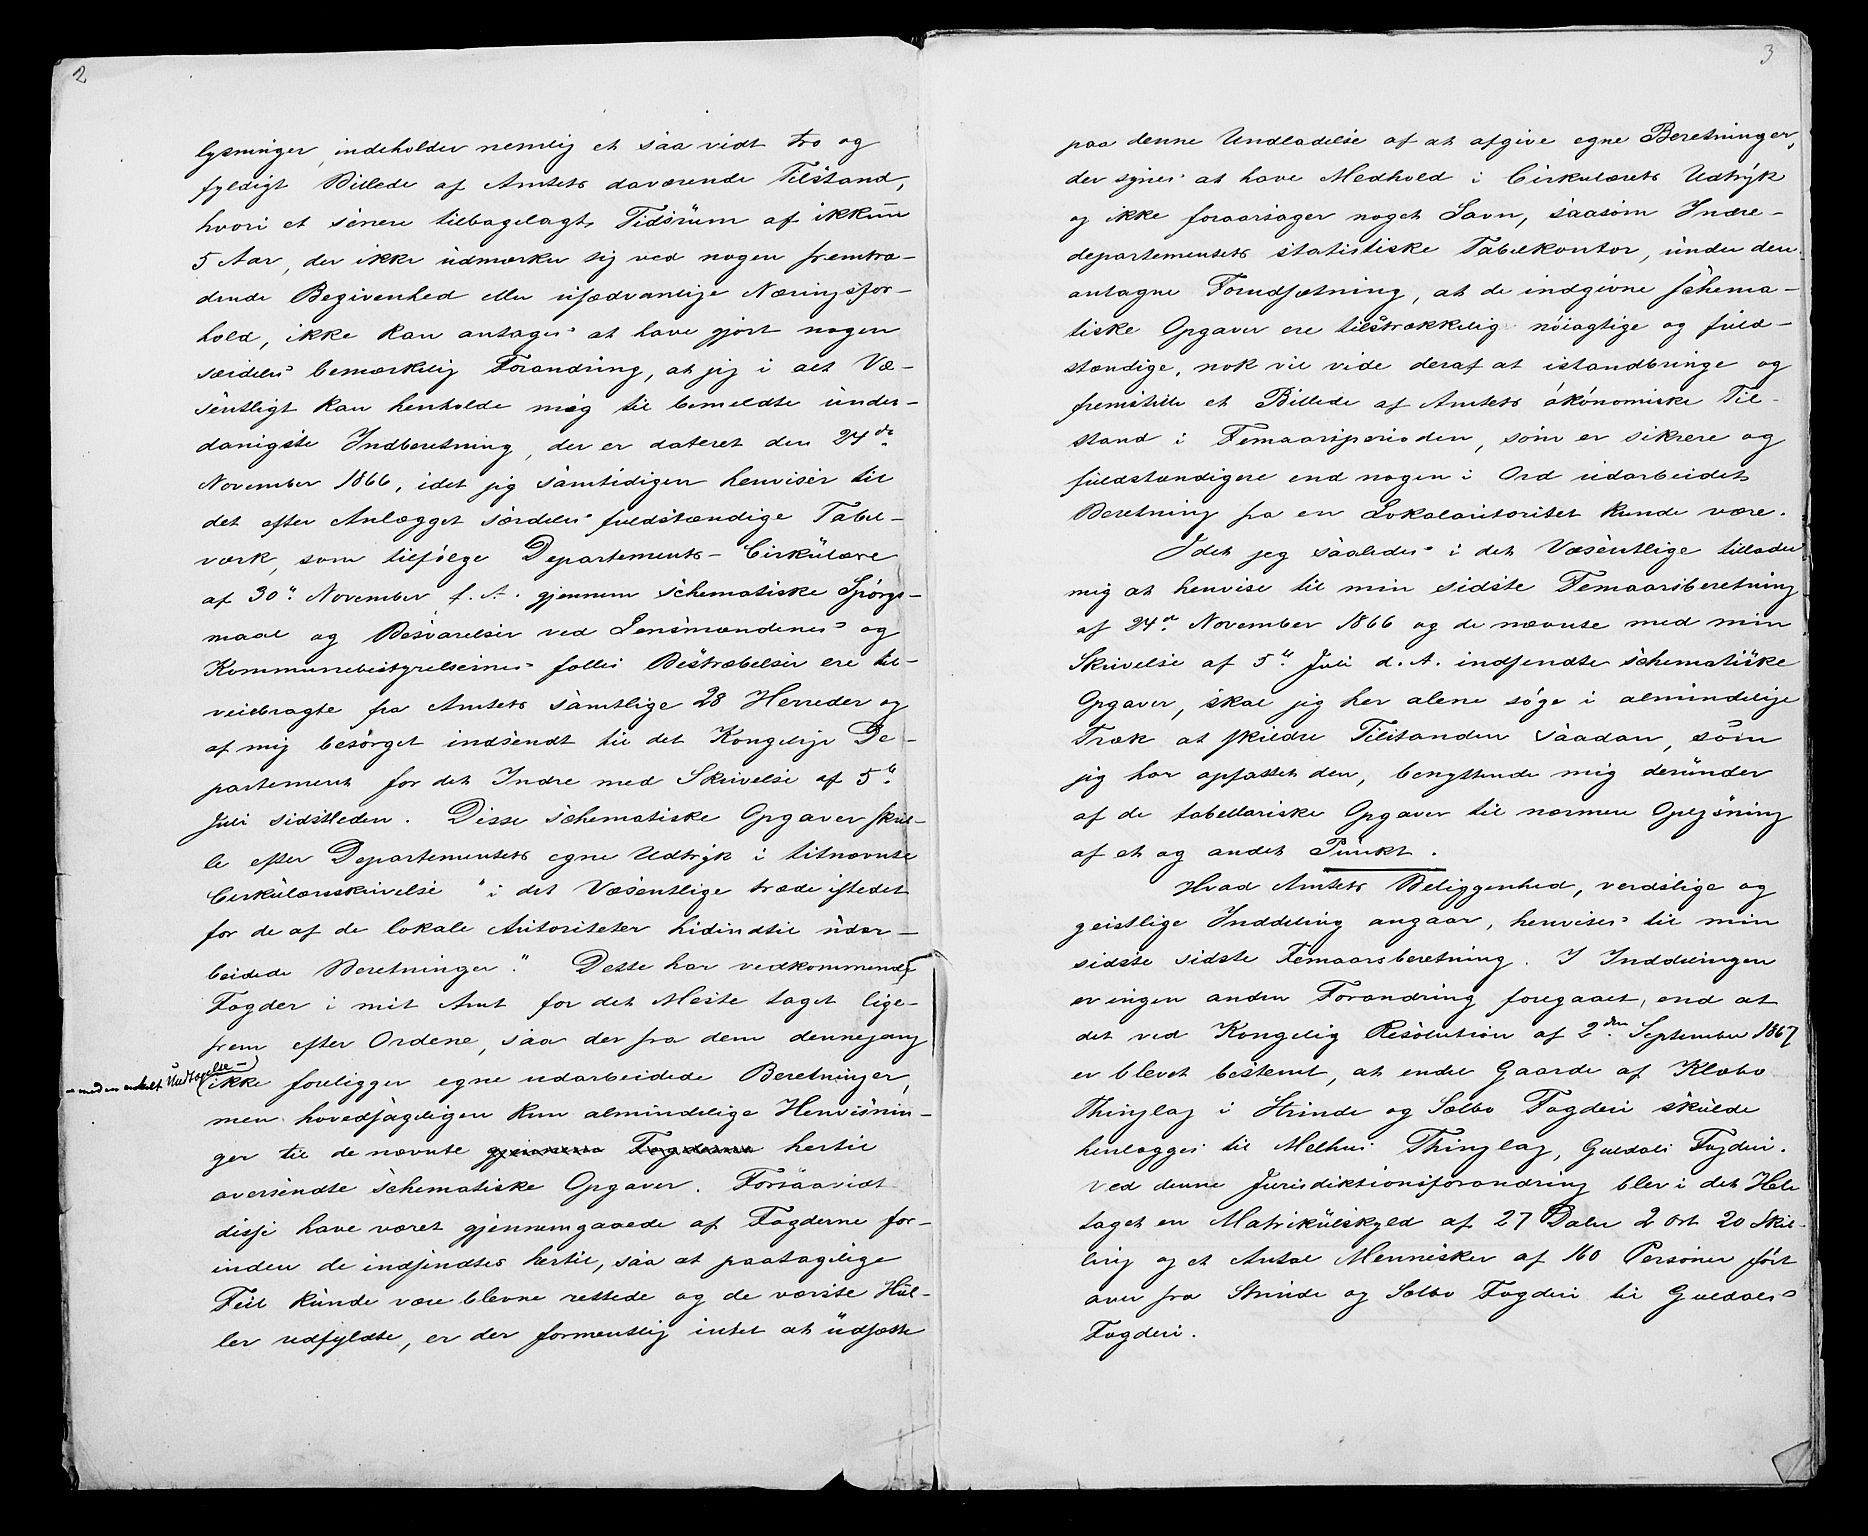 2
lysninger, indeholder nemlig et saa vidt tro og
fyldigt Billede af Amtets daværende Tilstand,
hvori et senere tilbagelagt Tidsrum af ikkun
5 Aar, der ikke udmærker sig ved nogen fremtræ-
dende Begivenhed eller usædvanlige Næringsfor-
hold, ikke kan antages at have gjort nogen
særdeles bemærkelig Forandring, at jeg i alt Væ-
sentligt kan henholde mig til bemeldte under-
danigste Indberetning, der er dateret den 24de
November 1866, idet jeg samtidigen henviser til
det efter Anlægget særdeles fuldstændige Tabel-
værk, som tilfølge Departements-Cirkulære
af 30te November f. A. gjennem schematiske Spørgs-
maal og Besvarelser ved Lensmændenes og
Kommunebestyrelsernes fælles Bestræbelser ere til-
veiebragte fra Amtets samtlige 28 Herreder og
af mig besørget indsendt til det Kongelige De-
partement for det Indre med Skrivelse af 5te
Juli sidstleden. Disse schematiske Opgaver skul-
le efter Departementets egne Udtryk i titnævnte
Cirkulærskrivelse "i det Væsentlige træde istedet
for de af de lokale Autoriteter hidindtil udar-
beidede Beretninger." Dette har vedkommende
Fogder i mit Amt for det Meste taget lige-
frem efter Ordene, saa der fra dem dennegang
- med en enkelt Undtagelse -
ikke foreligger egne udarbeidede Beretninger,
men hovedsageligen kun almindelige Henvisnin-
ger til de nævnte gjennem Fogderne hertil
oversendte schematiske Opgaver. Forsaavidt
disse have været gjennemgaaede af Fogderne for-
inden de indsendtes hertil, saa at paatagelige
Feil kunde være blevne rettede og de værste Hul-
ler udfyldte, er der formentlig intet at udsætte
3
paa denne Undladelse af at afgive egne Beretninger,
der synes at have Medhold i Cirkulærets Udtryk
og ikke foraarsager noget Savn, saasom Indre-
departementets statistiske Tabelkontor, under den
antagne Forudsætning, at de indgivne schema-
tiske Opgaver ere tilstrækkelig nøiagtige og fuld-
stændige, nok vil vide deraf at istandbringe og
fremstille et Billede af Amtets økonomiske Til-
stand i Femaarsperioden, som er sikrere og
fuldstændigere end nogen i Ord udarbeidet
Beretning fra en Lokalautoritet kunde være.
Idet jeg saaledes i det Væsentlige tillader
mig at henvise til min sidste Femaarsberetning
af 24de November 1866 og de nævnte med min
Skrivelse af 5te Juli d. A. indsendte schematiske
Opgaver, skal jeg her alene søge i almindelige
Træk at skildre Tilstanden saadan, som
jeg har opfattet den, benyttende mig derunder
af de tabellariske Opgaver til nærmere Oplysning
af et og andet Punkt.
Hvad Amtets Beliggenhed, verdslige og
geistlige Inddeling angaar, henvises til min
sidste sidste Femaarsberetning. I Inddelingen
er ingen anden Forandring foregaaet, end at
det ved Kongelig Resolution af 2den September 1867
er blevet bestemt, at endel Gaarde af Klæbo
Thinglag i Strinde og Sælbo Fogderi skulde
henlægges til Melhus Thinglag, Guldals Fogderi.
Ved denne Jurisdiktionsforandring blev i det Hele
taget en Matrikulskyld af 27 Daler 2 Ort 20 Skil-
ling og et Antal Mennesker af 160 Personer ført
over fra Strinde og Sælbo Fogderi til Guldals
Fogderi.